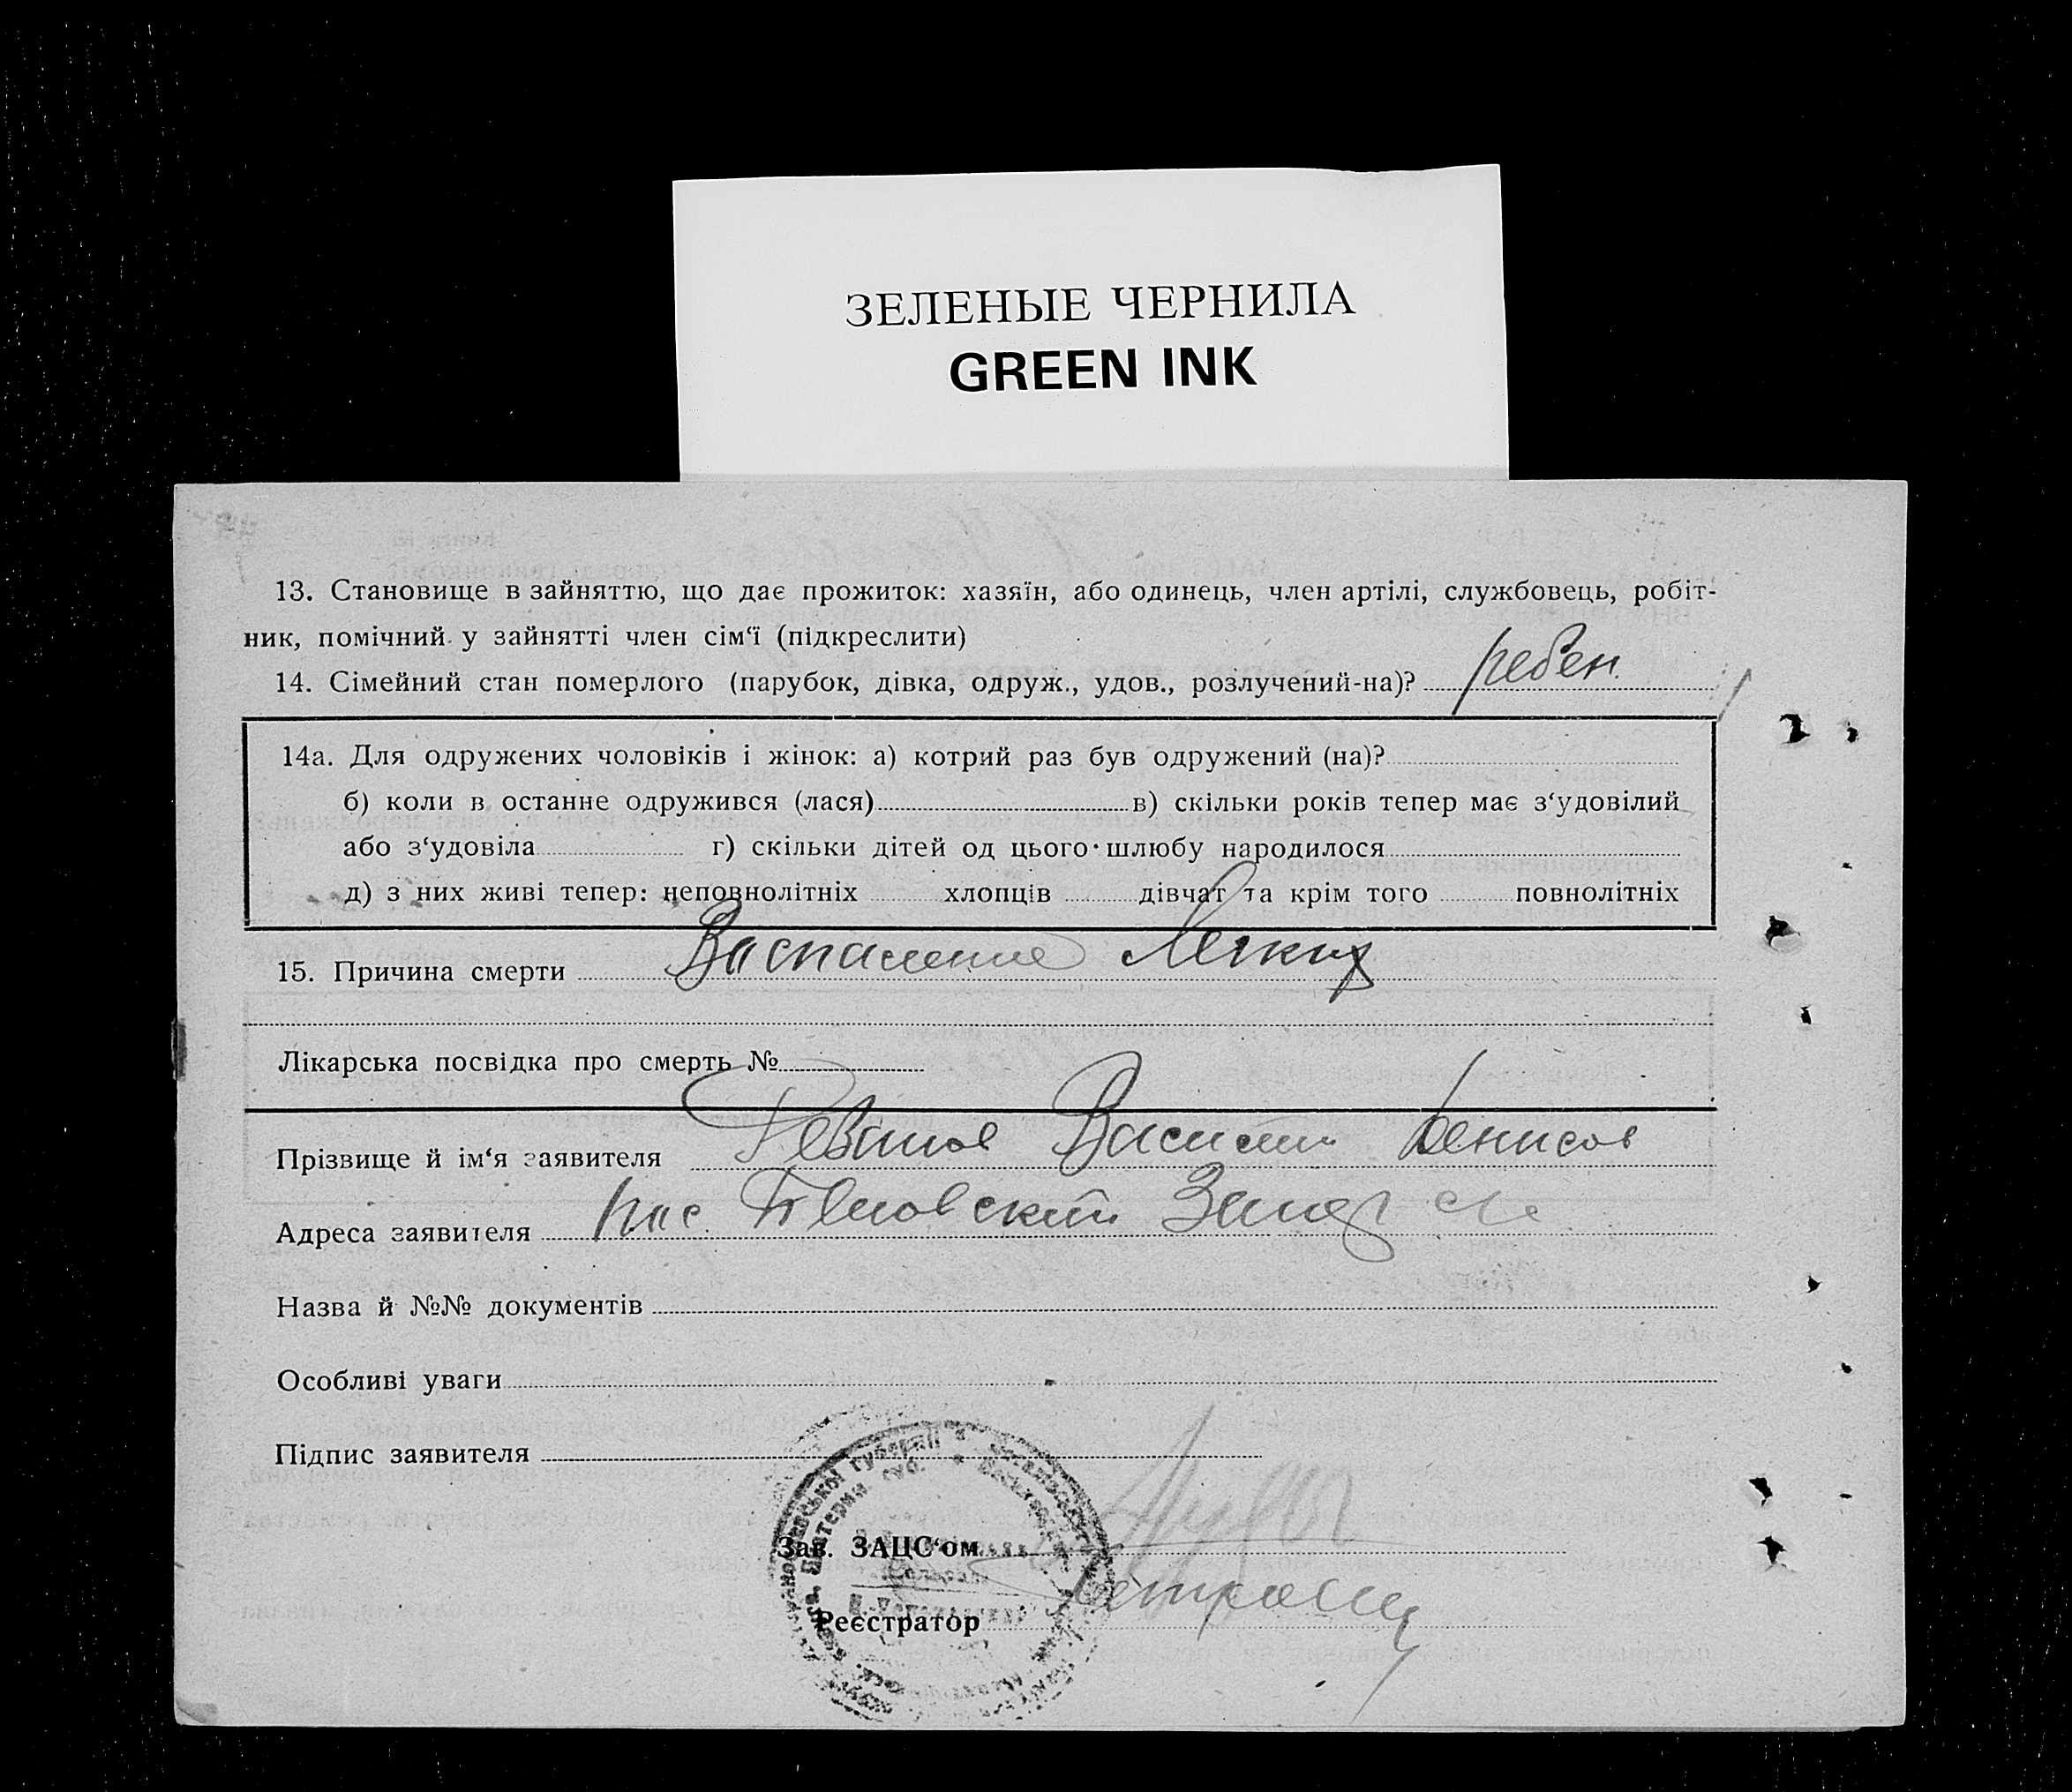 ЗЕЛЕНЫЕ ЧЕРНИЛА
GREEN INK
13. Становище в зайняттю, що дає прожиток: хазяїн, або одинець, член артілі, службовець, робіт-
ник, помічний у зайнятті член сім‘ї (підкреслити)
14. Сімейний стан померлого (парубок, дівка, одруж., удов., розлучений-на)? ребен.
14а. Для одружених чоловіків і жінок: а) котрий раз був одружений (на)?
б) коли в останне одружився (лася) в) скільки років тепер має з‘удовілий
або з‘удовіла г) скільки дітей од цього шлюбу народилося
д) з них живі тепер: неповнолітніх хлопців дівчат та крім того повнолітніх
15. Причина смерти Воспаление Легких
Лікарська посвідка про смерть №
Прізвище й ім‘я заявителя Василий Денисов
Адреса заявителя пос.
Назва й №№ документів
Особливі уваги
Підпис заявителя
Зав. ЗАЦС‘ом
Реєстратор